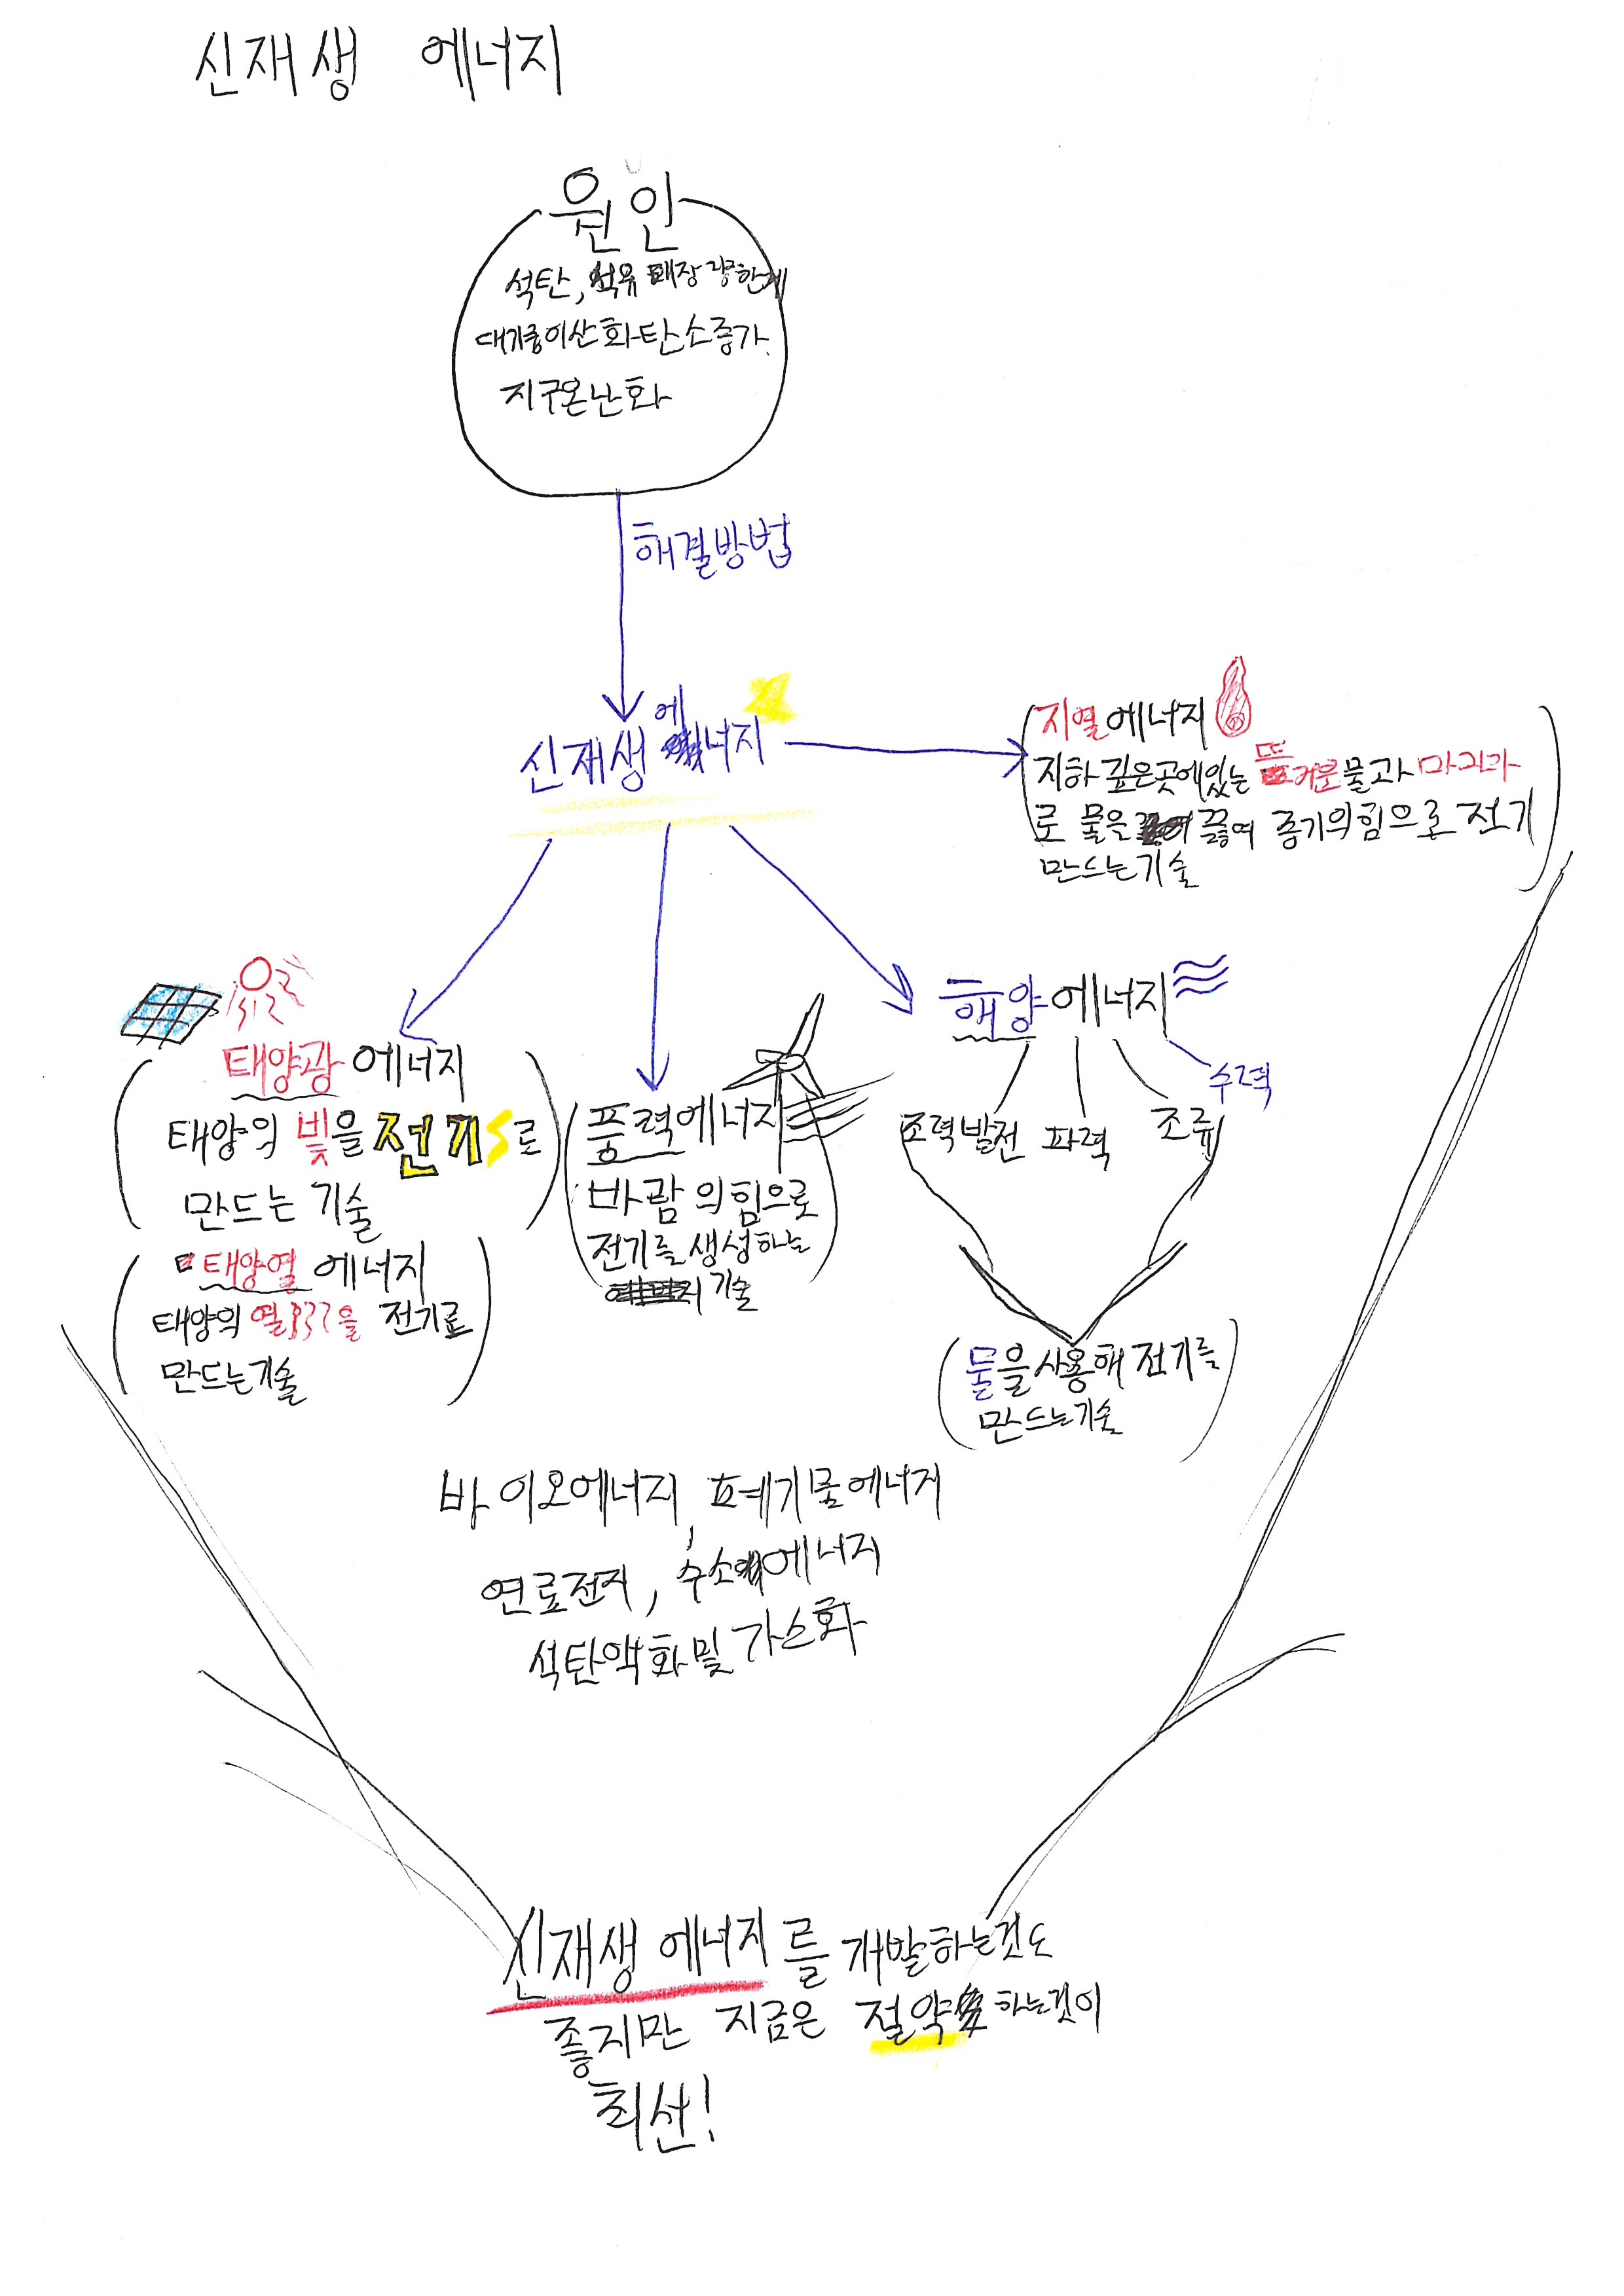 신재생 에너지
원인
석탄, 석유 매장량한계
대기중이산화탄소증가.
지구온난화
해결방법
신재생 에너지
지열에너지
지하 깊은곳에있는 뜨거운물과 마그마
로 물을 끓여 증기의힘으로 전기
만드는기술
태양광 에너지
태양의 빛을 전기로
만드는 기술
태양열 에너지
태양의 열을 전기로
만드는기술
풍력에너지
바람의힘으로
전기를 생성하는
기술
해양에너지
수력
조력발전 파력 조류
(물을사용해 전기를
만드는기술)
바이오에너지, 폐기물에너지
연료전지, 수소에너지
석탄액화및 가스화
신재생 에너지를 개발하는것도
좋지만 지금은 절약하는것이
최선!